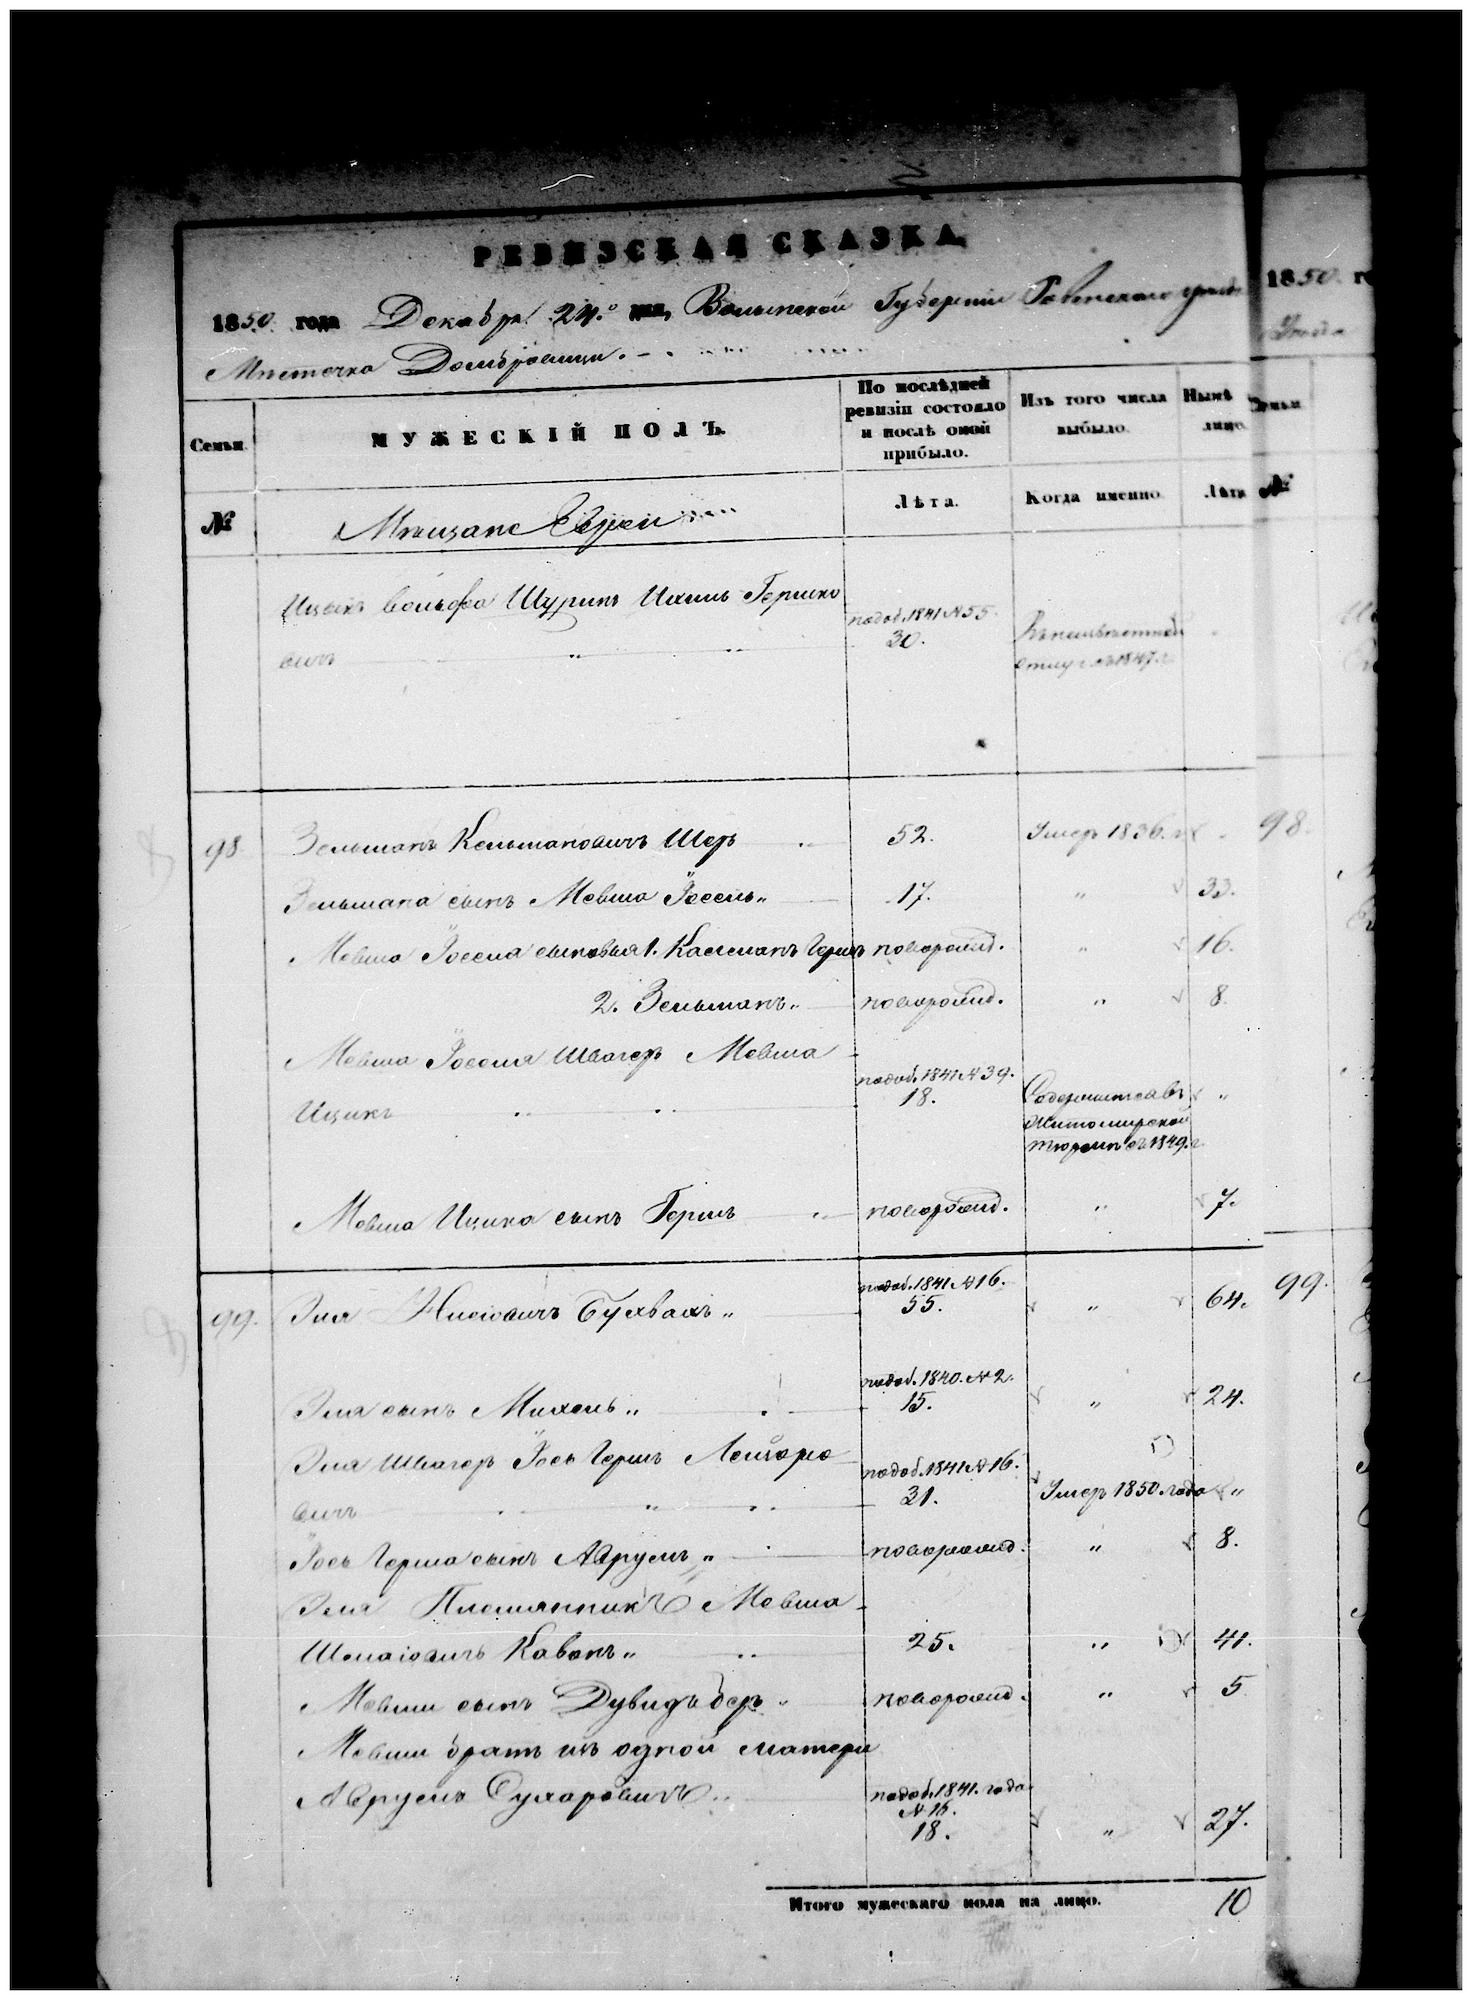 РЕВИЗСКАЯ СКАЗКА
1850 года Декабря 24.го дня, Волынской Губернии Ровенского уезда
Местечка Домбровицы.
Семьи.
МУЖЕСКІЙ ПОЛЪ.
По послѣдней ревизіи состояло и послѣ оной прибыло.
Изъ того числа выбыло.
Нынѣ на лицо.
№
Мѣщане Евреи
Лѣта.
Когда именно.
Лѣта
Ицыкъ Вольфа Шуринъ Ихиль Гершко
вичъ " " подоб. 1841 №55. 30.
98 Зельманъ Кельмановичъ Шеръ 52. Умеръ 1836.г
Зельмана сынъ Мовша Іосель " 17. " 33.
Мовша Іоселя сыновья 1. Кальманъ Гершъ новорожд. " 16.
2. Зельманъ " новорожд. " 8.
Мовша Іоселя Швагеръ Мовша
Ицикъ подоб. 1841 №39. 18. Содержится въ Житомирской тюрьмѣ съ 1849.г "
Мовша Ицика сынъ Гершъ новорожд. " 7.
99. Эля Бухвахъ " подоб. 1841 №16. 55. " 64.
Эля сынъ Михель " подоб. 1840. №2. 15. " 24.
Эля Швагеръ Іось Гершъ Лейзоро
вичъ " подоб. 1841 №16. 31. Умеръ 1850. года "
Іось Герша сынъ Аврумъ " новорожд. " 8.
Эля Племянникъ Мовша
Шмаіовичъ " 25. " 41.
Мовши сынъ Дувидъ Беръ " новорожд. " 5
Мовши братъ изъ одной матери
Аврумъ Сухаровичъ подоб. 1841. года №15. 18. " 27.
Итого мужескаго пола на лицо. 10
1850 го
Семьи
№
98.
99.